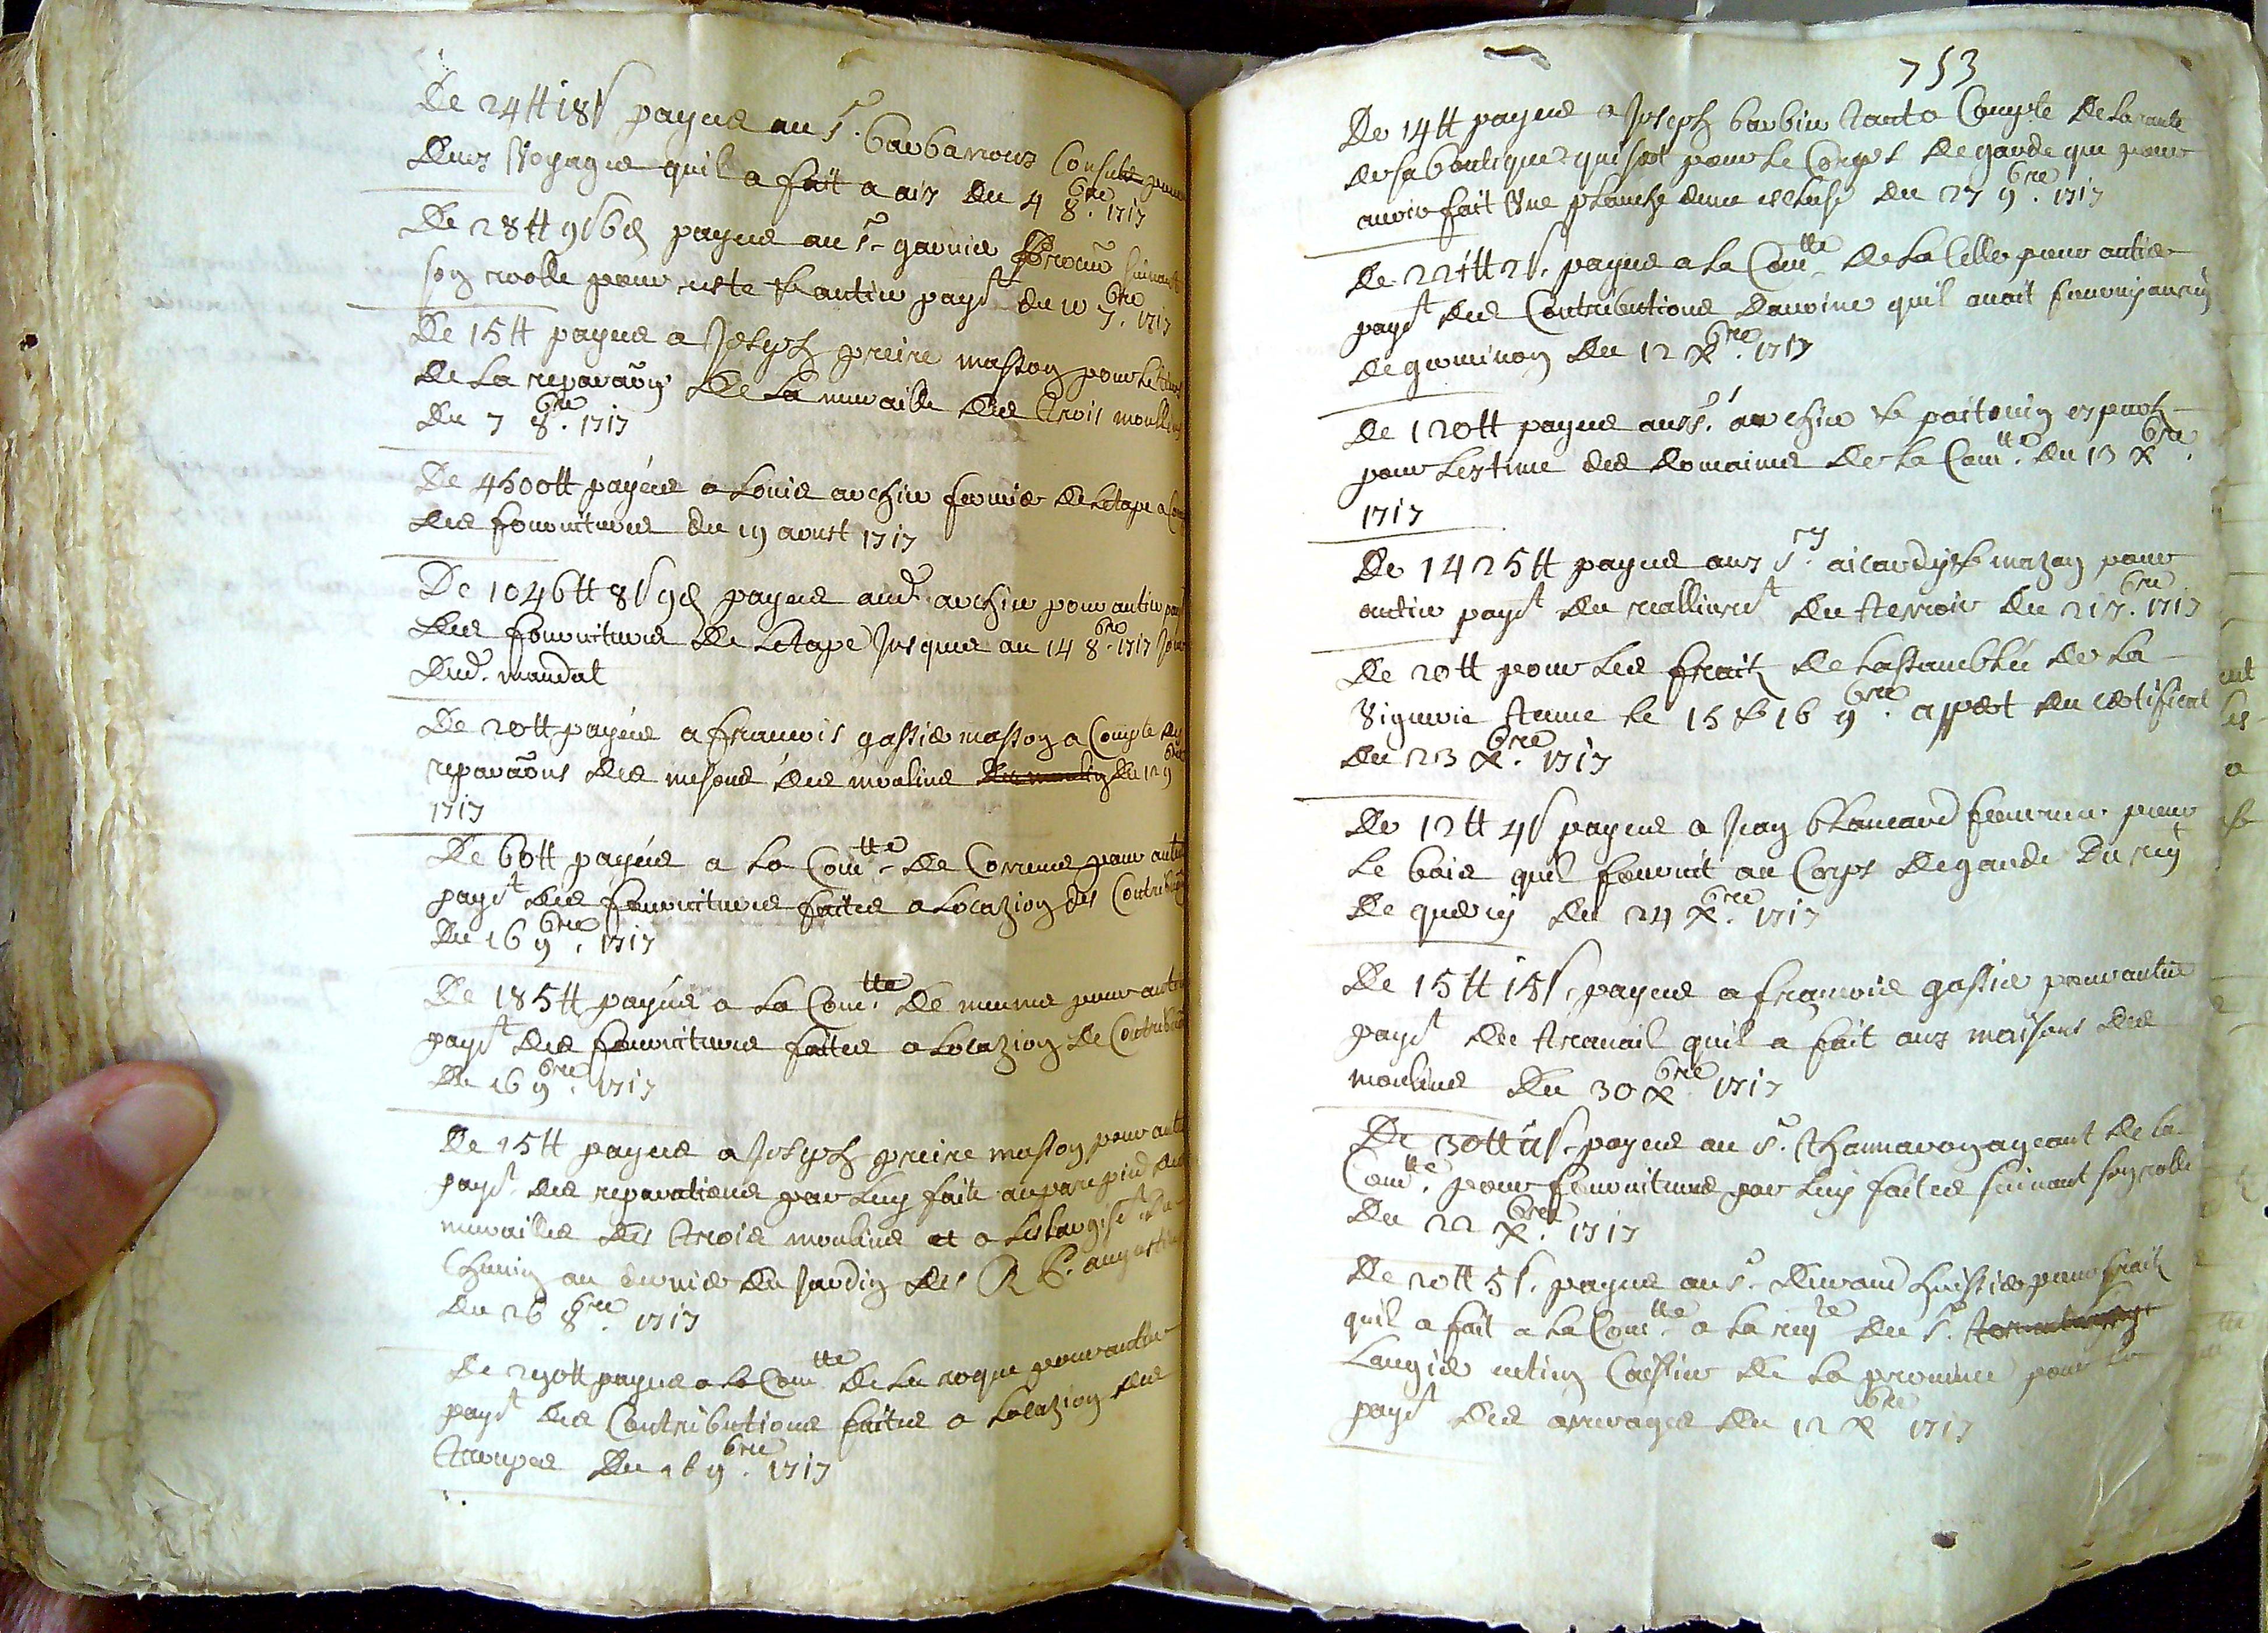 De 24tt 18s payees au Sr. barbaroux Consul pour
deux Voyages quil a fait a aix du 4 8.bre 1717
De 28tt 9s 6d payees au Sr garnier suivant
son rolle pour reste & antier payet du 10 7.bre 1717
De 15tt payees a Joseph preire masson pour
de la reparaon de la muraille des trois moullins
du 7 8.bre 1717
De 4500tt payées a Louis archier fermier de letape a
des fournitures du 19 aoust 1717
De 1046tt 8s 9d payees aud. archier pour antier
des fournitures de letape Jusques au 14 8.bre 1717 Jour
dud. mandat
De 20tt payées a francois gassier masson a Compte des
reparaons des mesons des moulins du 12 9bre
1717
De 60tt payées a la Comtte de Correns pour antier
payet des fournitures faites a locazion des Contributions
Du 16 9.bre 1717
De 185tt payées a la Com.tte de pour antier
payet des fournitures faites a locazion de Contributions
Du 16 9.bre 1717
De 15tt payees a Joseph preire masson pour antier
payet. des reparations par luy faite au parepied des
murailles des trois moulins et a leslargiset du
Chemin au dernier du Jardin des R P. augustins
du 26 8.bre 1717
De 290tt payees a la Comtte de la roque pour antier
payet des Contributions faites a locazion des
troupes Du 16 9.bre 1717
753
De 14tt payees a Joseph barbier tant a Compte de la rante
de sa boutique qui sert pour le Corps de garde que pour
avoir fait Une planche du 27 9.bre 1717
De 221tt 2s. payees a la Comtte de la Celle pour antier
payet des Contributions davoine quil avoit fourny au
de du 12 X.bre 1717
De 120tt payees aux Srs. archier & pertz
pour lestime des domaines de la Comtte. du 13 X.bre
1717
De 1425tt payees aux Srs. aicardy & mazan pour
antier payet du realliuret du terroir du 21 7.bre 1717
De 20tt pour les fraitz de lassamblée de la
Viguerie tenue le 15 & 16 9.bre appert du certificat
du 23 X.bre 1717
De 12tt 4s payees a Jean blancard pour
le bois quil fournit au Corps de garde Du
de du 24 X.bre 1717
De 15tt 15s. payees a francois gassier pour antier
payet du travail quil a fait aux maisons des
moulins Du 30 Xbre 1717
De 30tt payees au Sr. thanaron ageant de la
Comtte. pour fournitures par luy faites suivant son rolle
Du 22 X.bre 1717
De 20tt 5s. payees au Sr. durand huissier pour fraitz
quil a fait a la Comtte a la du Sr.
Laugier Caissier de la province pour le
payet des arrerages du 12 Xbre 1717